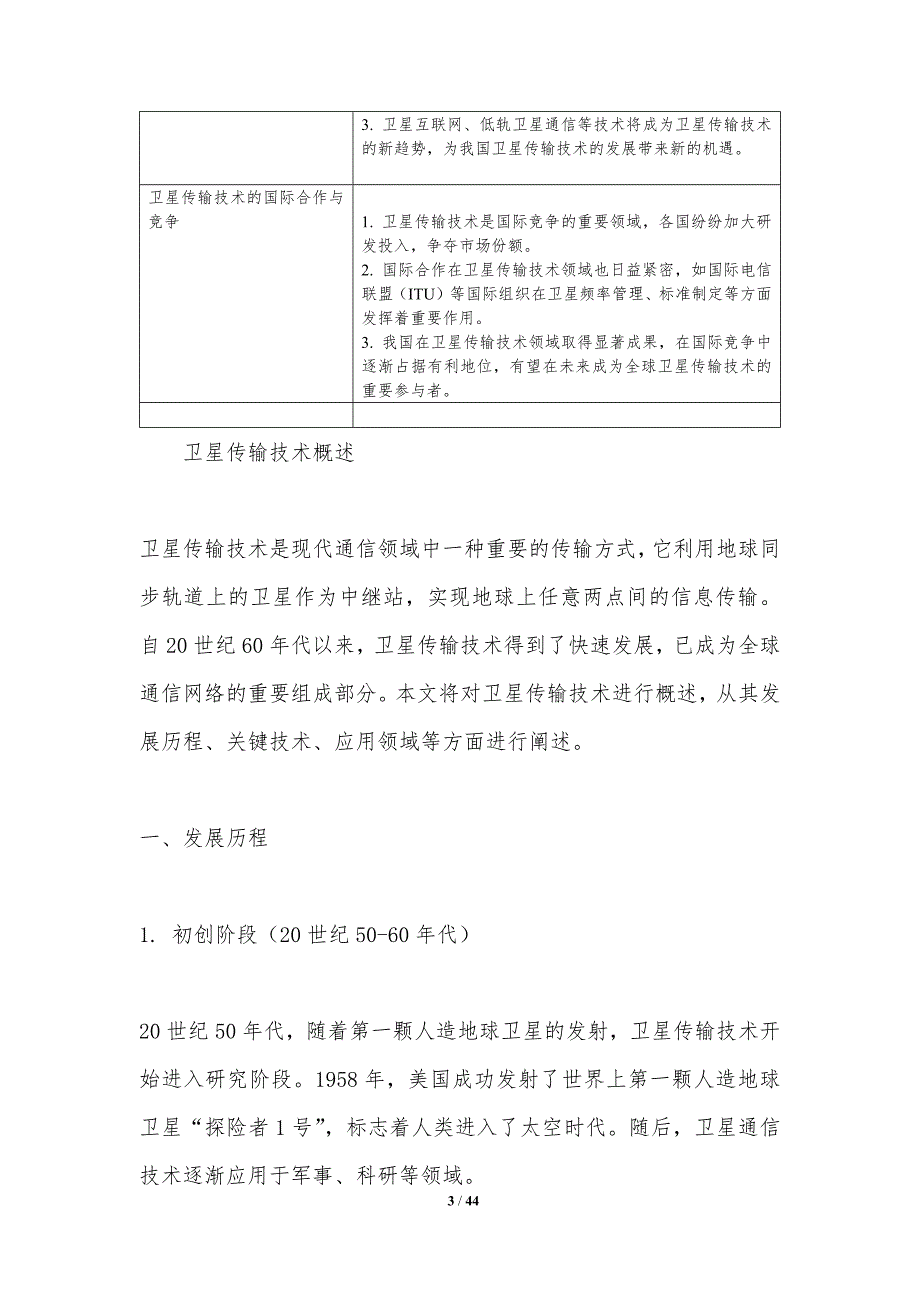 3. 卫星互联网、低轨卫星通信等技术将成为卫星传输技术
的新趋势，为我国卫星传输技术的发展带来新的机遇。
卫星传输技术的国际合作与
竞争
1. 卫星传输技术是国际竞争的重要领域，各国纷纷加大研
发投入，争夺市场份额。
2. 国际合作在卫星传输技术领域也日益紧密，如国际电信
联盟（ITU）等国际组织在卫星频率管理、标准制定等方面
发挥着重要作用。
3. 我国在卫星传输技术领域取得显著成果，在国际竞争中
逐渐占据有利地位，有望在未来成为全球卫星传输技术的
重要参与者。
卫星传输技术概述
卫星传输技术是现代通信领域中一种重要的传输方式，它利用地球同
步轨道上的卫星作为中继站，实现地球上任意两点间的信息传输。
自20世纪60年代以来，卫星传输技术得到了快速发展，已成为全球
通信网络的重要组成部分。本文将对卫星传输技术进行概述，从其发
展历程、关键技术、应用领域等方面进行阐述。
一、发展历程
1. 初创阶段（20世纪50-60年代）
20世纪50年代，随着第一颗人造地球卫星的发射，卫星传输技术开
始进入研究阶段。1958年，美国成功发射了世界上第一颗人造地球
卫星“探险者1号”，标志着人类进入了太空时代。随后，卫星通信
技术逐渐应用于军事、科研等领域。
3 / 44